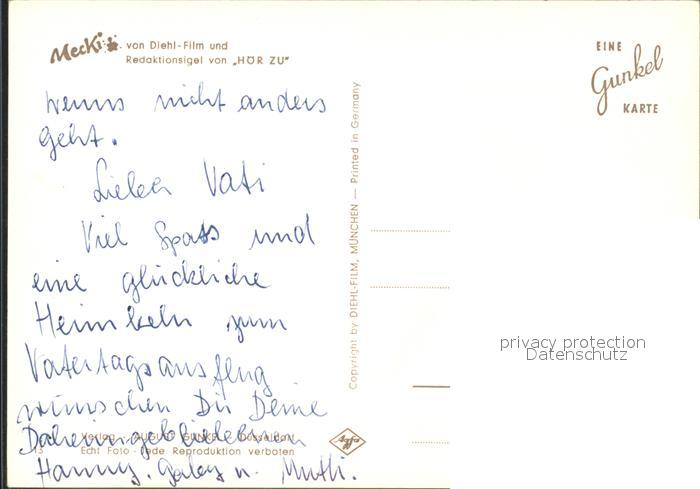 Mecki von Diehl-Film und
Redaktionsigel von „HÖR ZU"
EINE
Gunkel
KARTE
wenns nicht anders
geht.
Lieber Vati
Viel Spass und
eine glückliche
Heimkehr zum
Vatertagsausflug
wünschen Dir Deine
Daheimgebliebenen
Hanny, Gaby u. Mutti.
Verlag AUGUST GUNKEL Düsseldorf
Echt Foto - Jede Reproduktion verboten
Agfa
Copyright by DIEHL-FILM, MÜNCHEN — Printed in Germany
privacy protection
Datenschutz